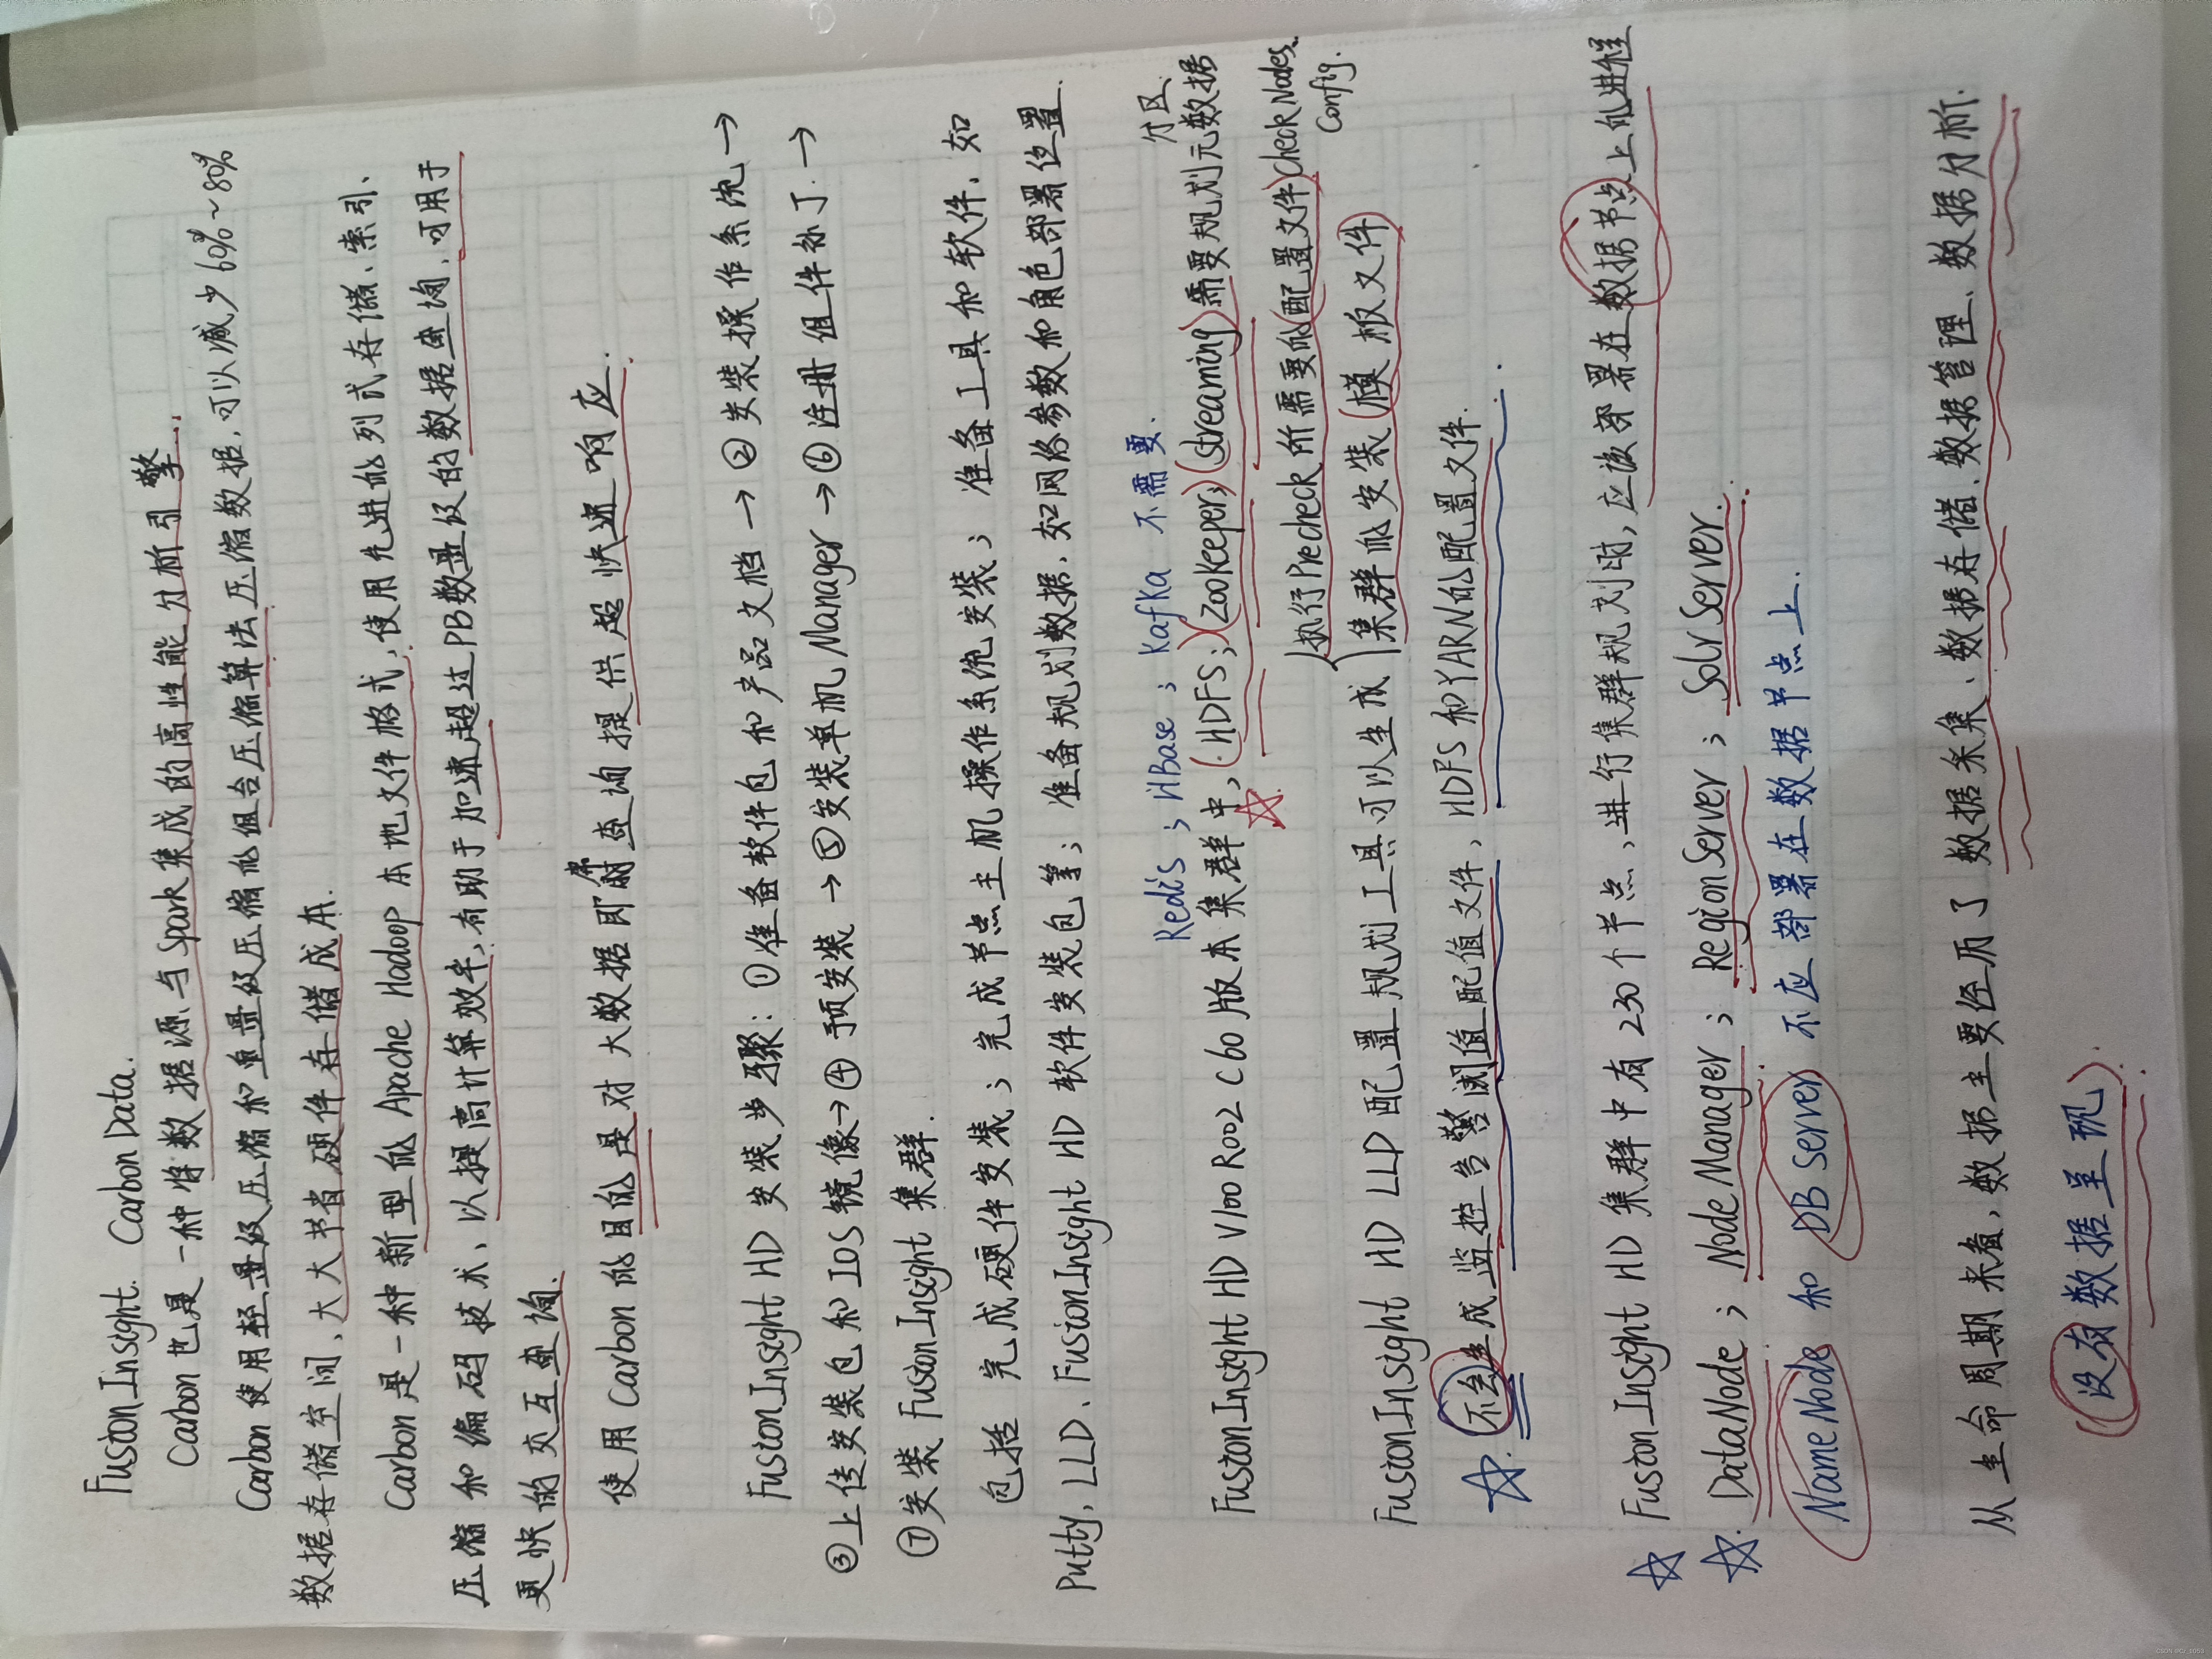 FusionInsight. CarbonData.
Carbon也是一种将数据源与Spark集成的高性能分析引擎.
Carbon使用轻量级压缩和重量级压缩的组合压缩算法压缩数据,可以减少60%~80%
数据存储空间,大大节省硬件存储成本.
Carbon是一种新型的Apache Hadoop本地文件格式,使用先进的列式存储、索引、
压缩和编码技术,以提高计算效率,有助于加速超过PB数量级的数据查询,可用于
更快的交互查询.
使用Carbon的目的是对大数据即席查询提供超快速响应.
FusionInsight HD 安装步骤:①准备软件包和产品文档→②安装操作系统→
③上传安装包和IOS镜像→④预安装→⑤安装单机Manager→⑥注册组件补丁→
⑦安装FusionInsight集群.
包括完成硬件安装;完成节点主机操作系统安装;准备工具和软件,如
Putty, LLD、FusionInsight HD 软件安装包等;准备规划数据,如网络参数和角色部署位置.
Redis;HBase;Kafka 不需要.
分区.
FusionInsight HD V100R002C60版本集群中,(HDFS;)(Zookeeper;)(Streaming)需要规划元数据
FusionInsight HD LLD配置规划工具可以生成
执行Precheck所需要的(配置文件)CheckNodes.
Config.
集群的安装(模板文件)
☆.不会生成监控告警阈值配值文件,HDFS和YARN的配置文件.
☆ FusionInsight HD 集群中有230个节点,进行集群规划时,应该部署在数据节点上的进程
☆. DataNode;NodeManager;RegionServer;SolrServer.
NameNode 和 DB Server 不应部署在数据节点上.
从生命周期来看,数据主要经历了数据采集、数据存储、数据管理、数据分析.
(没有数据呈现).